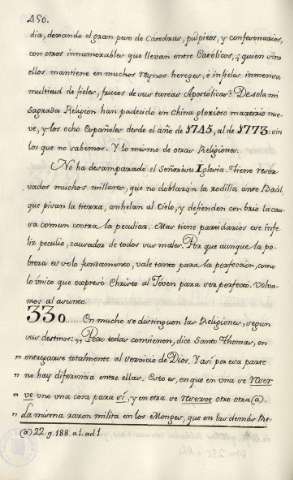 450.
dia, dexando el gran puro de Catedras, pulpitos, y confesonarios,
con otros innumerables que llevan entre Catolicos, ¿quien sino
ellos mantiene en muchos reynos hereges, è infieles inmensa
multitud de fieles, frutos de sus tareas Apostolicas? De sola mi
Sagrada Religion han padecido en China glorioso martirio nue-
ve, y los ocho Españoles desde el año de 1745, al de 1773. sin
los que no sabemos. Y lo mismo de otras Religiones.
No ha desamparado el Señor à su Iglesia. Tiene reser-
vados muchos millones, que no doblarán la rodilla ante Baál,
que pisan la tierra, anhelan al Cielo, y defienden con brio la cau-
sa comun contra la peculiar. Mas tiene partidarios ese infe-
liz peculio, causador de todos sus males. Por que aunque la po-
breza es solo instrumento, vale tanto para la perfeccion, como
lo unico que expresó Christo al Joven para ser perfecto. Volva-
mos al asunto.
330 En mucho se distinguen las Religiones, segun
sus destinos; Pero todas convienen, dice Santo Thomas, en
" entregarse totalmente al servicio de Dios. Y asi por esa parte
" no hay diferencia entre ellas. Esto es, que en una se reser-
" ve uno una cosa para sí, y en otra se reserve otro otra (a).
La misma razon milita en los Monges, que en las demás Re-
(a) 22. q. 188. a. 1. ad 1.